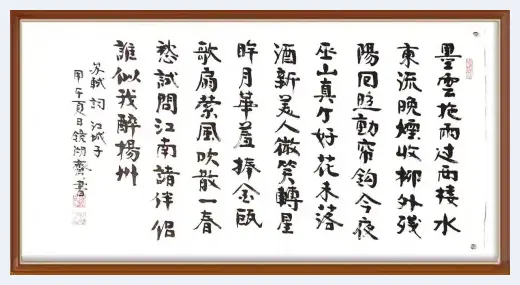 墨雲拖雨过西楼水
東流晚煙收柳外残
陽回照動帘鈎今夜
巫山真个好花未落
酒新美人微笑轉星
眸月華羞捧金甌
歌扇萦風吹散一春
愁試問江南諸伴侣
誰似我醉揚州
苏轼詞江城子
甲午夏日镜湖齋書